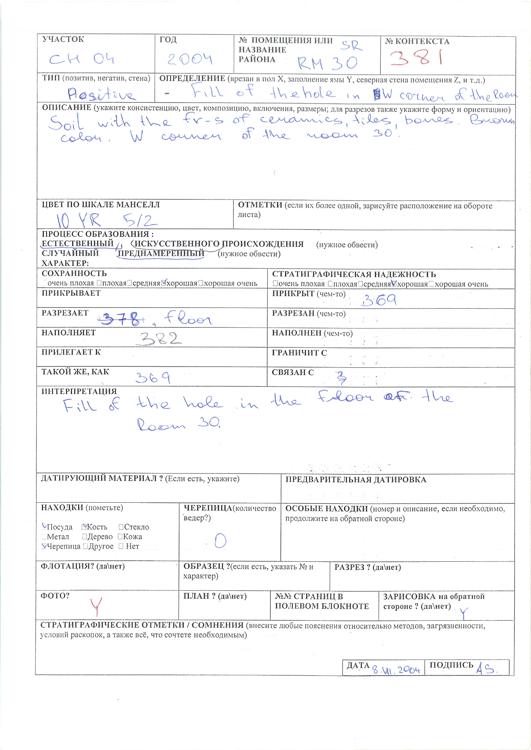 УЧАСТОК ГОД № ПОМЕЩЕНИЯ ИЛИ НАЗВАНИЕ РАЙОНА № КОНТЕКСТА
CH 04 2004 SR RM 30 381
ТИП (позитив, негатив, стена) ОПРЕДЕЛЕНИЕ (врезан в пол X, заполнение ямы Y, северная стена помещения Z, и т.д.)
Positive - Fill of the hole in W corner of the room
ОПИСАНИЕ (укажите консистенцию, цвет, композицию, включения, размеры; для разрезов также укажите форму и ориентацию)
Soil with the fr-s of ceramics, tiles, bones. Brown
color. W corner of the room 30.
ЦВЕТ ПО ШКАЛЕ МАНСЕЛЛ ОТМЕТКИ (если их более одной, зарисуйте расположение на обороте листа)
10 YR 5/2
ПРОЦЕСС ОБРАЗОВАНИЯ :
ЕСТЕСТВЕННЫЙ / ИСКУССТВЕННОГО ПРОИСХОЖДЕНИЯ (нужное обвести)
СЛУЧАЙНЫЙ ПРЕДНАМЕРЕННЫЙ (нужное обвести)
ХАРАКТЕР:
СОХРАННОСТЬ СТРАТИГРАФИЧЕСКАЯ НАДЕЖНОСТЬ
очень плохая плохая средняя хорошая хорошая очень очень плохая плохая средняя хорошая хорошая очень
ПРИКРЫВАЕТ ПРИКРЫТ (чем-то) 369
РАЗРЕЗАЕТ 378, floor РАЗРЕЗАН (чем-то)
НАПОЛНЯЕТ 382 НАПОЛНЕН (чем-то)
ПРИЛЕГАЕТ К ГРАНИЧИТ С
ТАКОЙ ЖЕ, КАК 369 СВЯЗАН С
ИНТЕРПРЕТАЦИЯ
Fill of the hole in the floor of the
Room 30.
ДАТИРУЮЩИЙ МАТЕРИАЛ ? (Если есть, укажите) ПРЕДВАРИТЕЛЬНАЯ ДАТИРОВКА
НАХОДКИ (пометьте) ЧЕРЕПИЦА(количество ведер?) ОСОБЫЕ НАХОДКИ (номер и описание, если необходимо, продолжите на обратной стороне)
Посуда Кость Стекло
Метал Дерево Кожа
Черепица Другое Нет
0
ФЛОТАЦИЯ? (да\нет) ОБРАЗЕЦ ?(если есть, указать № и характер) РАЗРЕЗ ? (да\нет)
ФОТО? Y ПЛАН ? (да\нет) №№ СТРАНИЦ В ПОЛЕВОМ БЛОКНОТЕ ЗАРИСОВКА на обратной стороне ? (да\нет) Y
СТРАТИГРАФИЧЕСКИЕ ОТМЕТКИ / СОМНЕНИЯ (внесите любые пояснения относительно методов, загрязненности,
условий раскопок, а также всё, что сочтете необходимым)
ДАТА 8.VI.2004 ПОДПИСЬ AS.